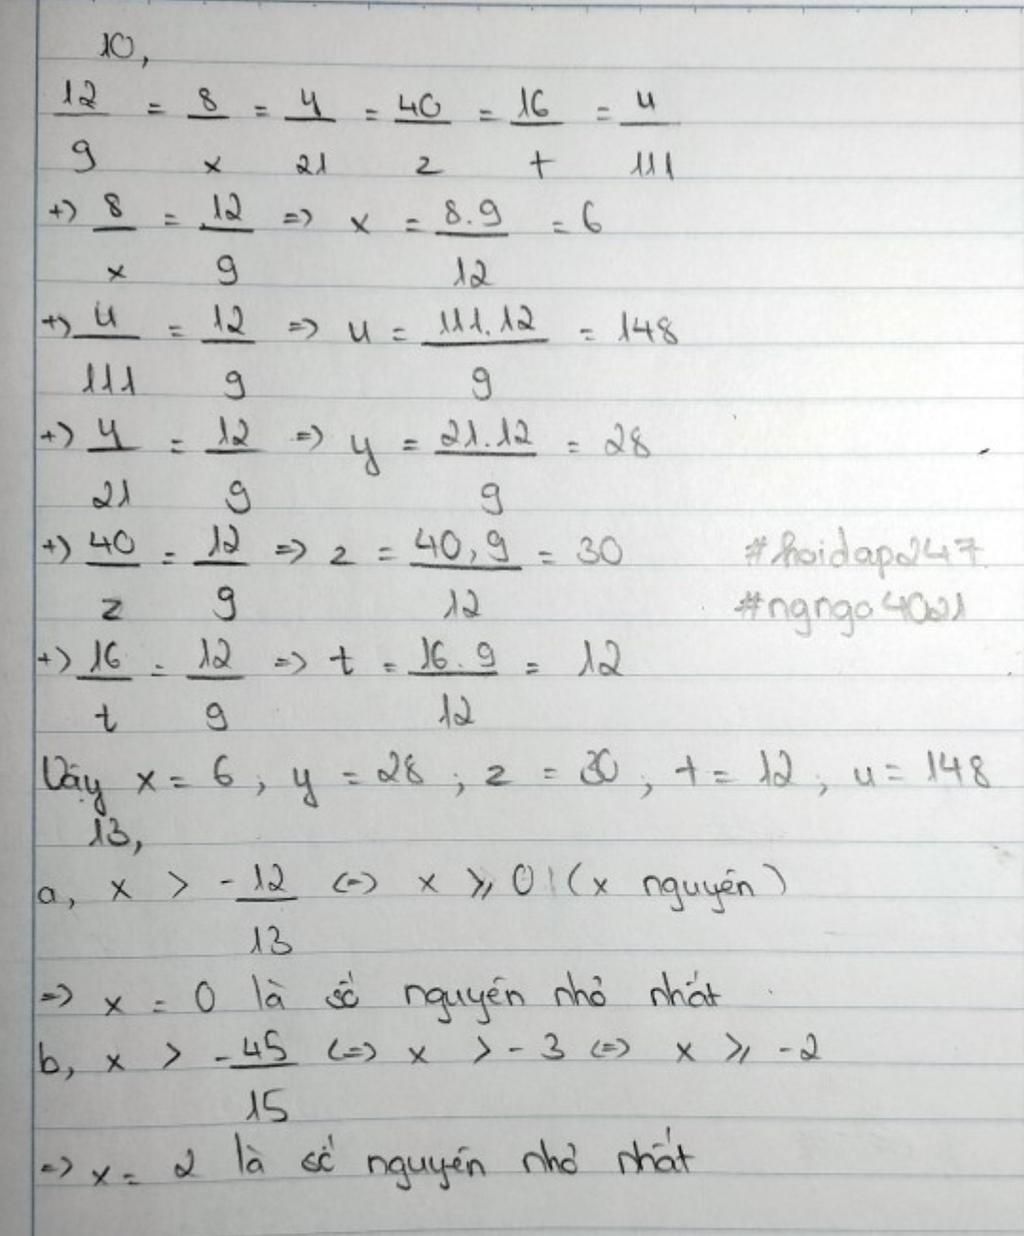 10,
12/9 = 8/x = y/21 = 40/z = 16/t = u/111
+) 8/x = 12/9 => x = 8.9/12 = 6
+) u/111 = 12/9 => u = 111.12/9 = 148
+) y/21 = 12/9 => y = 21.12/9 = 28
+) 40/z = 12/9 => z = 40,9/12 = 30
#hoidap247
#ngngo4021
+) 16/t = 12/9 => t = 16.9/12 = 12
Vậy x = 6, y = 28; z = 30, t = 12, u = 148
13,
a, x > -12/13 <=> x ⩾ 0 (x nguyên)
=> x = 0 là số nguyên nhỏ nhất
b, x > -45/15 <=> x > -3 <=> x ⩾ -2
=> x = 2 là số nguyên nhỏ nhất